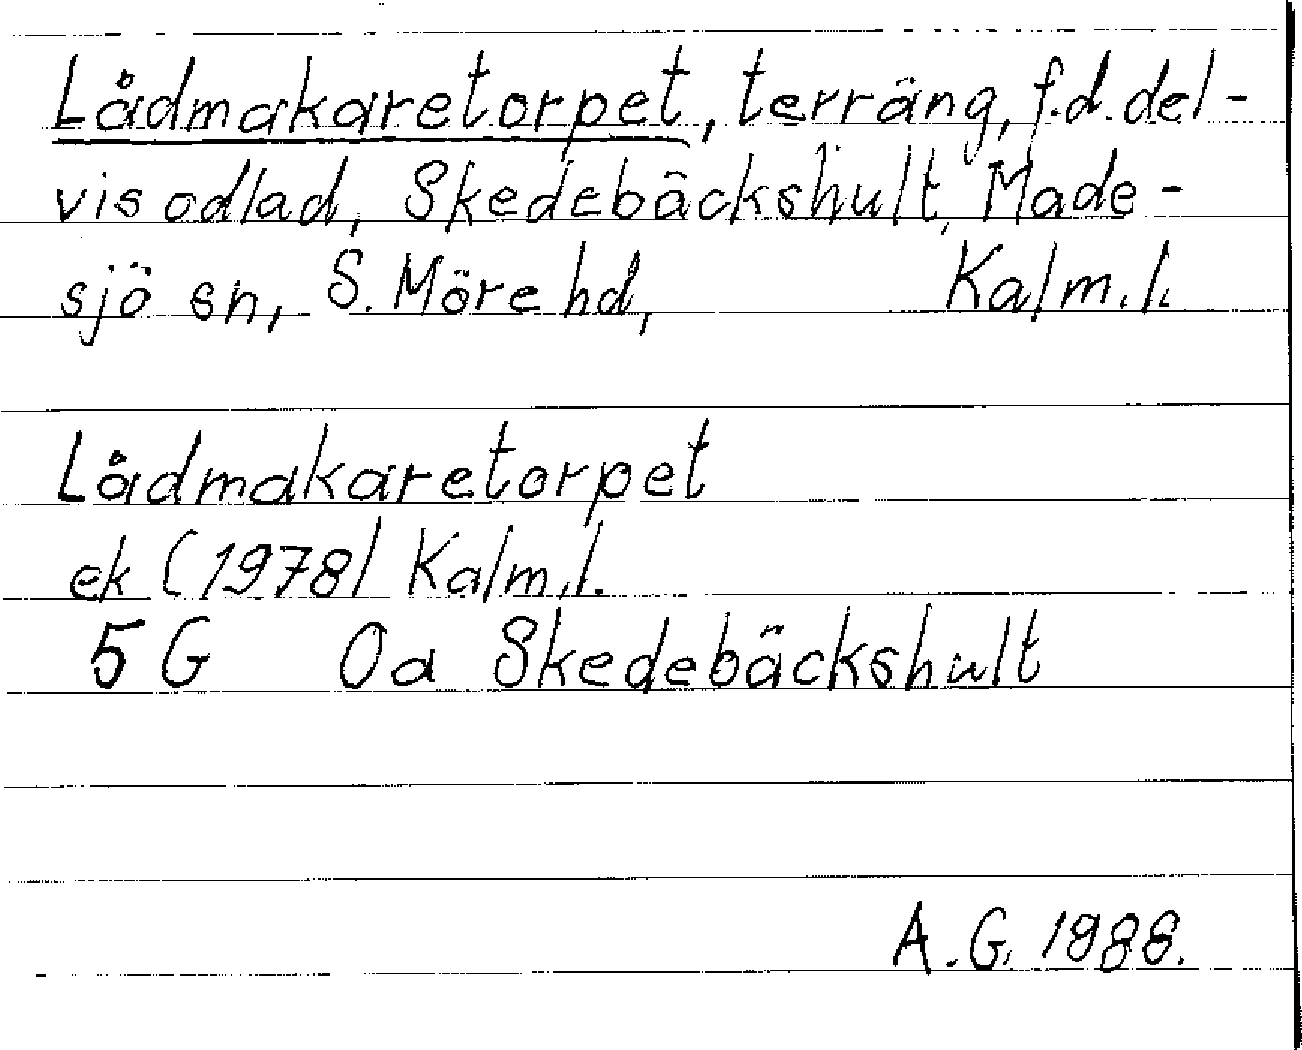 Lådmakaretorpet, terräng, f.d. del-
vis odlad, Skedebäckshult, Made-
sjö sn, S. Möre hd, Kalm.l.
Lådmakaretorpet
ek (1978) Kalm.l.
5 G Oa Skedebäckshult
A.G. 1988.